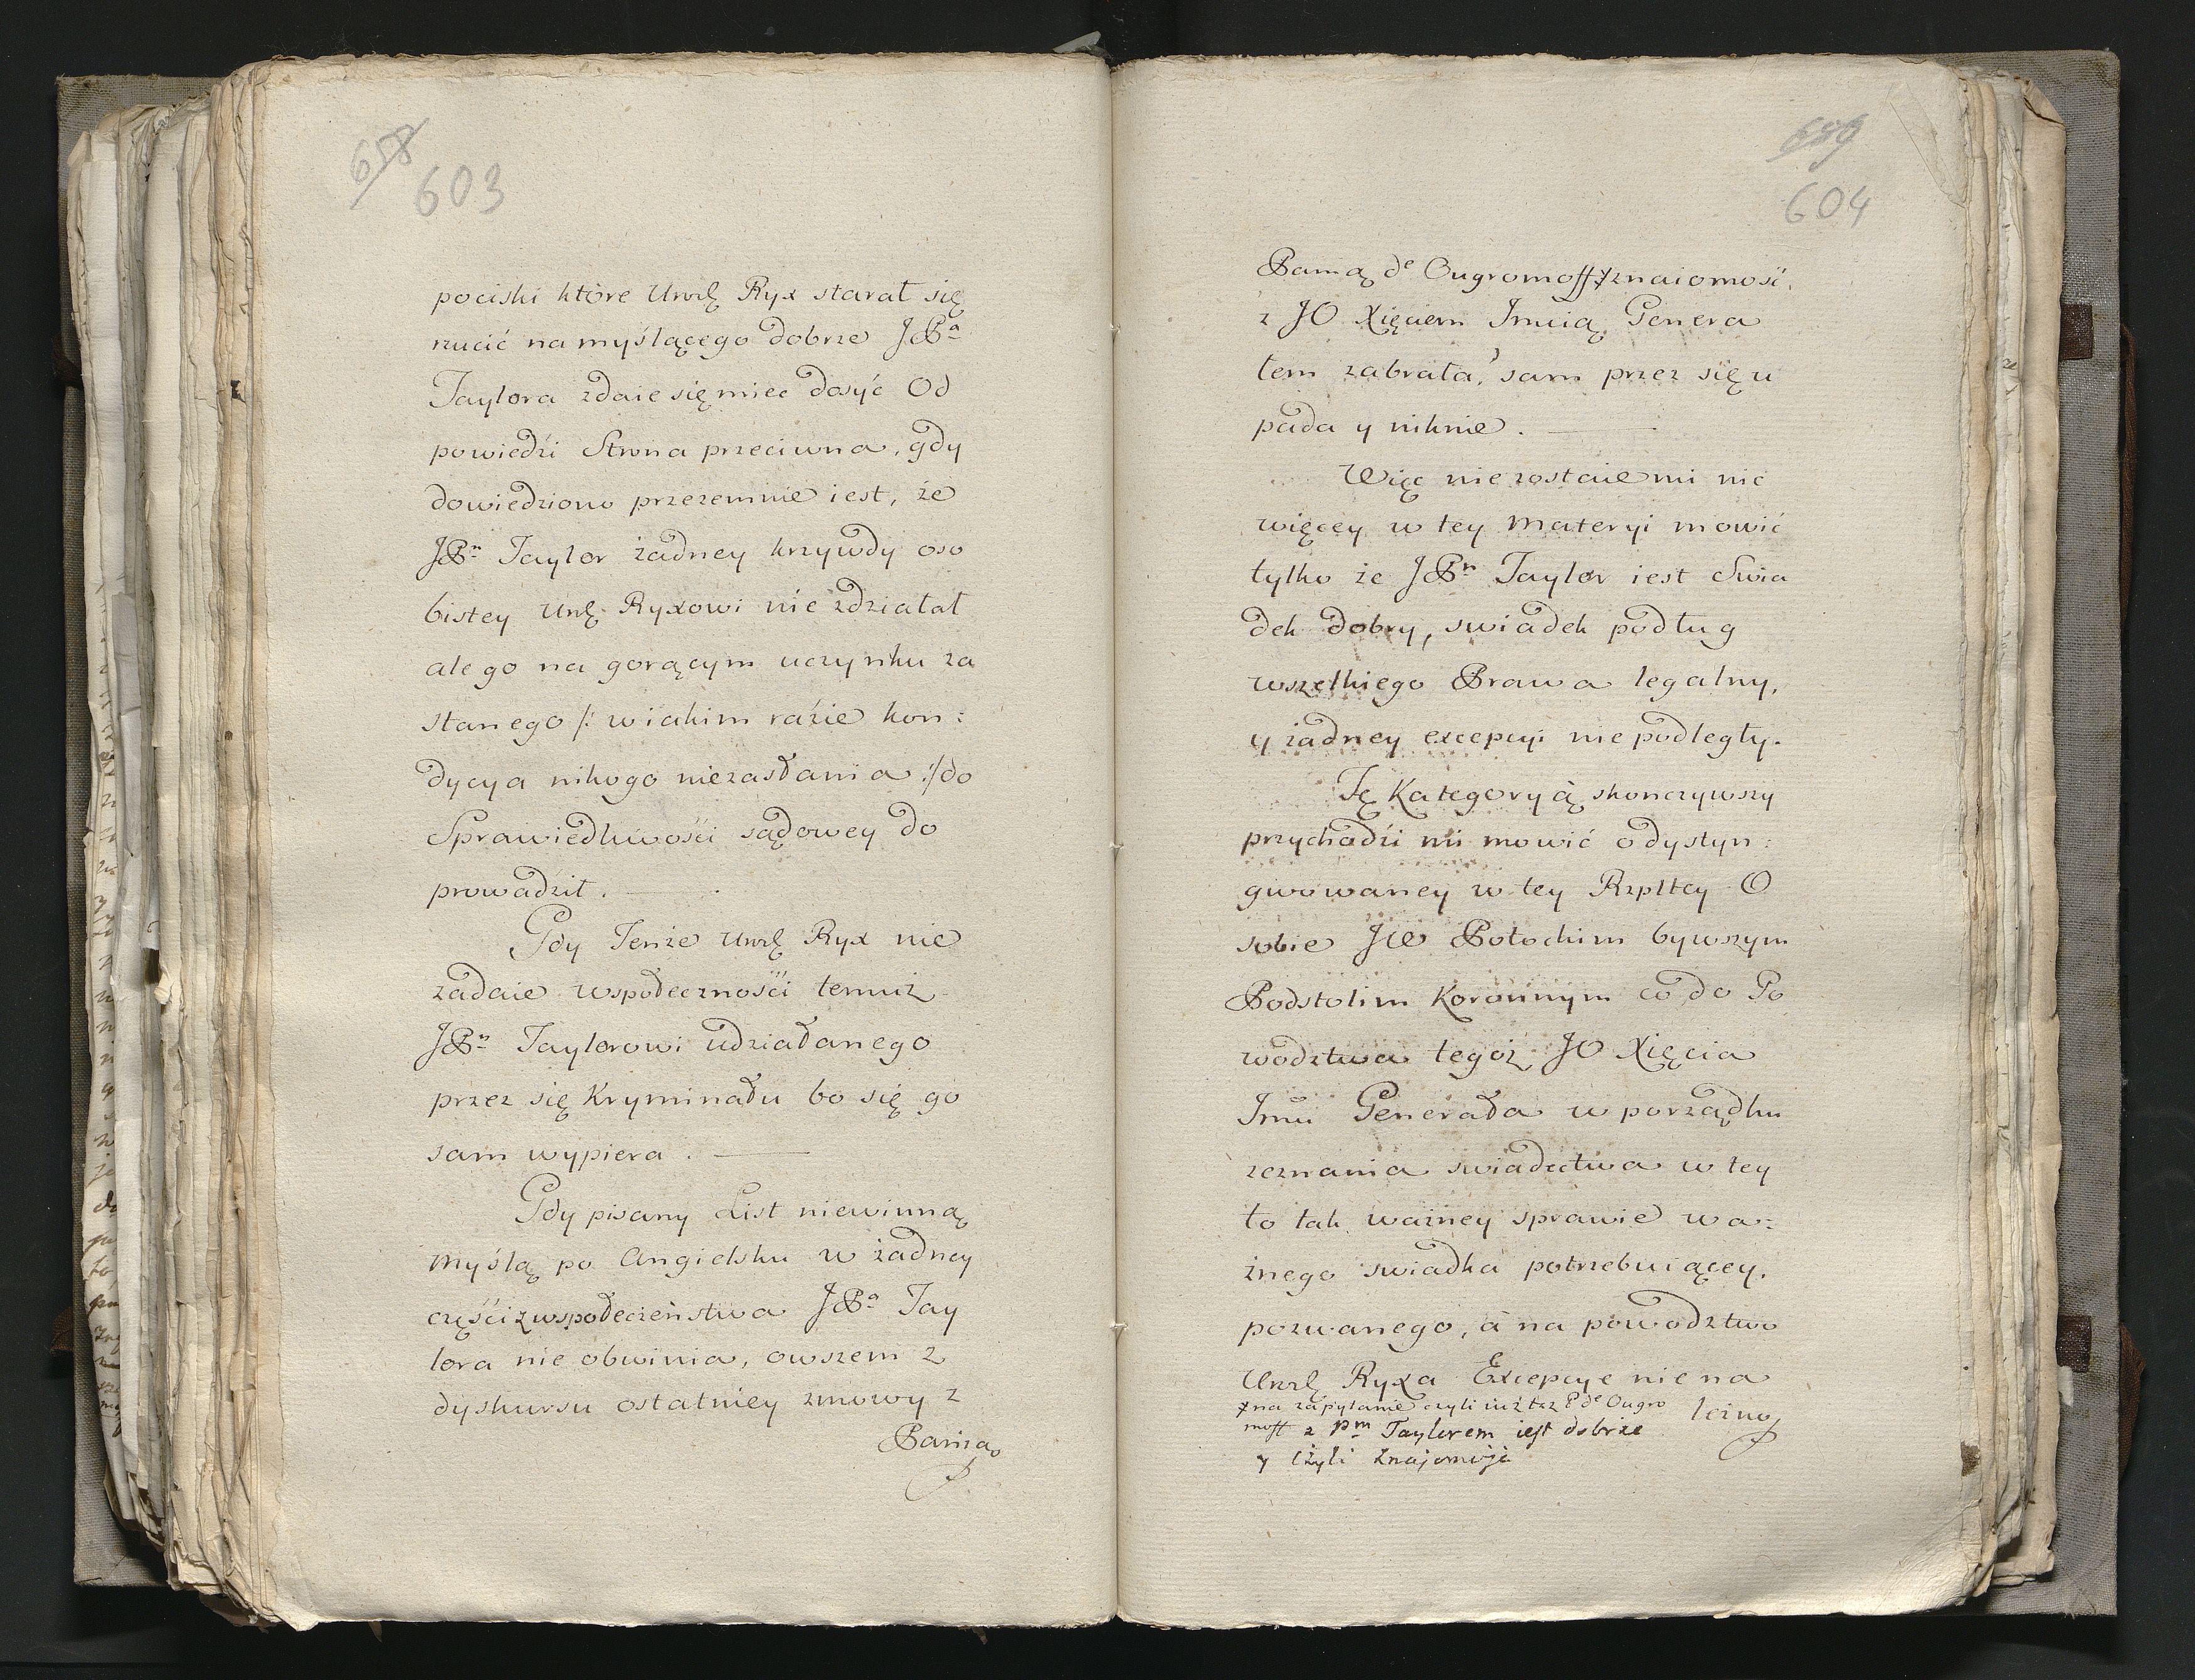 658
603
pociski które Urodź Ryx starał się
rzucić na myślącego dobrze JPa
Taylora zdaie się miec dosyć Od
powiedźi Strona przeciwna, gdy
dowiedziono przezemnie iest, że
JPn Taylor żadney krzywdy oso
bistey Urodź Ryxowi nie zdziałał
ale go na gorącym uczynku za
stanego /: w iakim raźie kon:
dycya nikogo niezasłania :/ do
Sprawiedliwości sądowey do
prowadził.
Gdy Tenże Urodź Ryx nie
zadaie wspołecznośći temuż
JPn Taylorowi udziałanego
przez się Kryminału bo się go
sam wypiera.
Gdy pisany List niewinną
myślą po Angielsku w żadney
częśći z wspołeczeństwa JPa Tay
lora nie obwinia, owszem z
dyskursu ostatniey zmowy z
Panią
659
604
Panią de Ougromoff znaiomosć
z JO Xięciem Imcią Genera
łem zabrała, sam przez się u
pada y niknie.
Więc nie zostaie mi nic
więcey w tey materyi mowić
tylko że JPn Taylor iest Swia
dek dobry, swiadek podług
wszelkiego Prawa legalny,
y żadney excepcyi nie podległy.
Tę Kategoryą skonczywszy
przychodźi mi mowić o dystyn:
gwowaney w tey Rzpltey O
sobie JW Potockim bywszym
Podstolim Koronnym co do Po
wodztwa tegoż JO Xięcia
Imci Generała w porządku
zeznania swiadectwa w tey
to tak ważney sprawie wa:
żnego swiadka potrzebuiącey,
pozwanego, à na powodztwo
Urodź Ryxa Excepcye nie na
leżną
na zapytanie czyli iuż też P de Ougro
moff z Pm Taylorem iest dobrze
y czyli znajomość